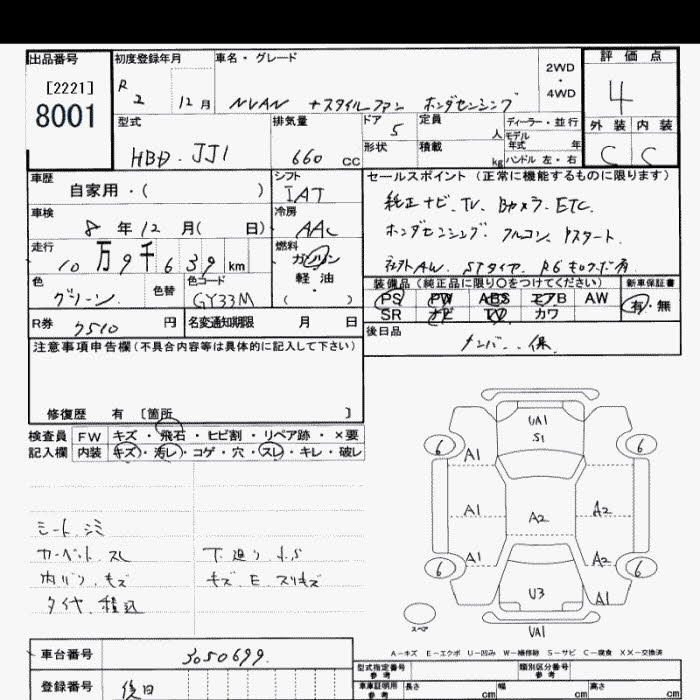 出品番号 初度登録年月 車名・グレード 2WD・4WD 評価点
[2221]
8001
R 2 12月 NVAN +スタイルファン ホンダセンシング 4
型式 排気量 ドア 定員 人 ディーラー・並行 外装 内装
HBD-JJ1 660 cc 5 モデル年式 年 C C
形状 積載 kg ハンドル 左・右
車歴 シフト セールスポイント (正常に機能するものに限ります)
自家用・( ) IAT 純正ナビ、TV、Bカメラ、ETC、
車検 冷房
8年12月( 日) AAC ホンダセンシング、フルコン、Pスタート、
走行 燃料
10万9千639km ガソリン 社外AW、STタイヤ、R6キロ
軽油
( )
色 色替 色コード 装備品 (純正品に限り○をつけてください) 新車保証書
グリーン GY33M PS PW ABS エアB AW 有・無
SR ナビ TV カワ
R券 7510円 名変通知期限 月 日 後日品
ナンバー、保
注意事項申告欄 (不具合内容等は具体的に記入して下さい)
修復歴 有 〔箇所 〕
検査員 FW キズ・飛石・ヒビ割・リペア跡・×要
記入欄 内装 キズ・汚レ・コゲ・穴・スレ・キレ・破レ
シート、シミ
カーペット、スレ 下廻り、小S
内バリ、キズ キズ、E、スリキズ
タイヤ、積込
UA1
S1
6 6
A1
A1 A2 A2
A1 A2
6 6
U3 A1
スペア UA1
A-キズ E-エクボ U-凹み W-補修跡 S-サビ C-腐食 XX-交換済
車台番号 3050699
型式指定番号 参考 類別区分番号 参考
登録番号 後日
車庫証明用 参考 長さ cm 幅 cm 高さ cm